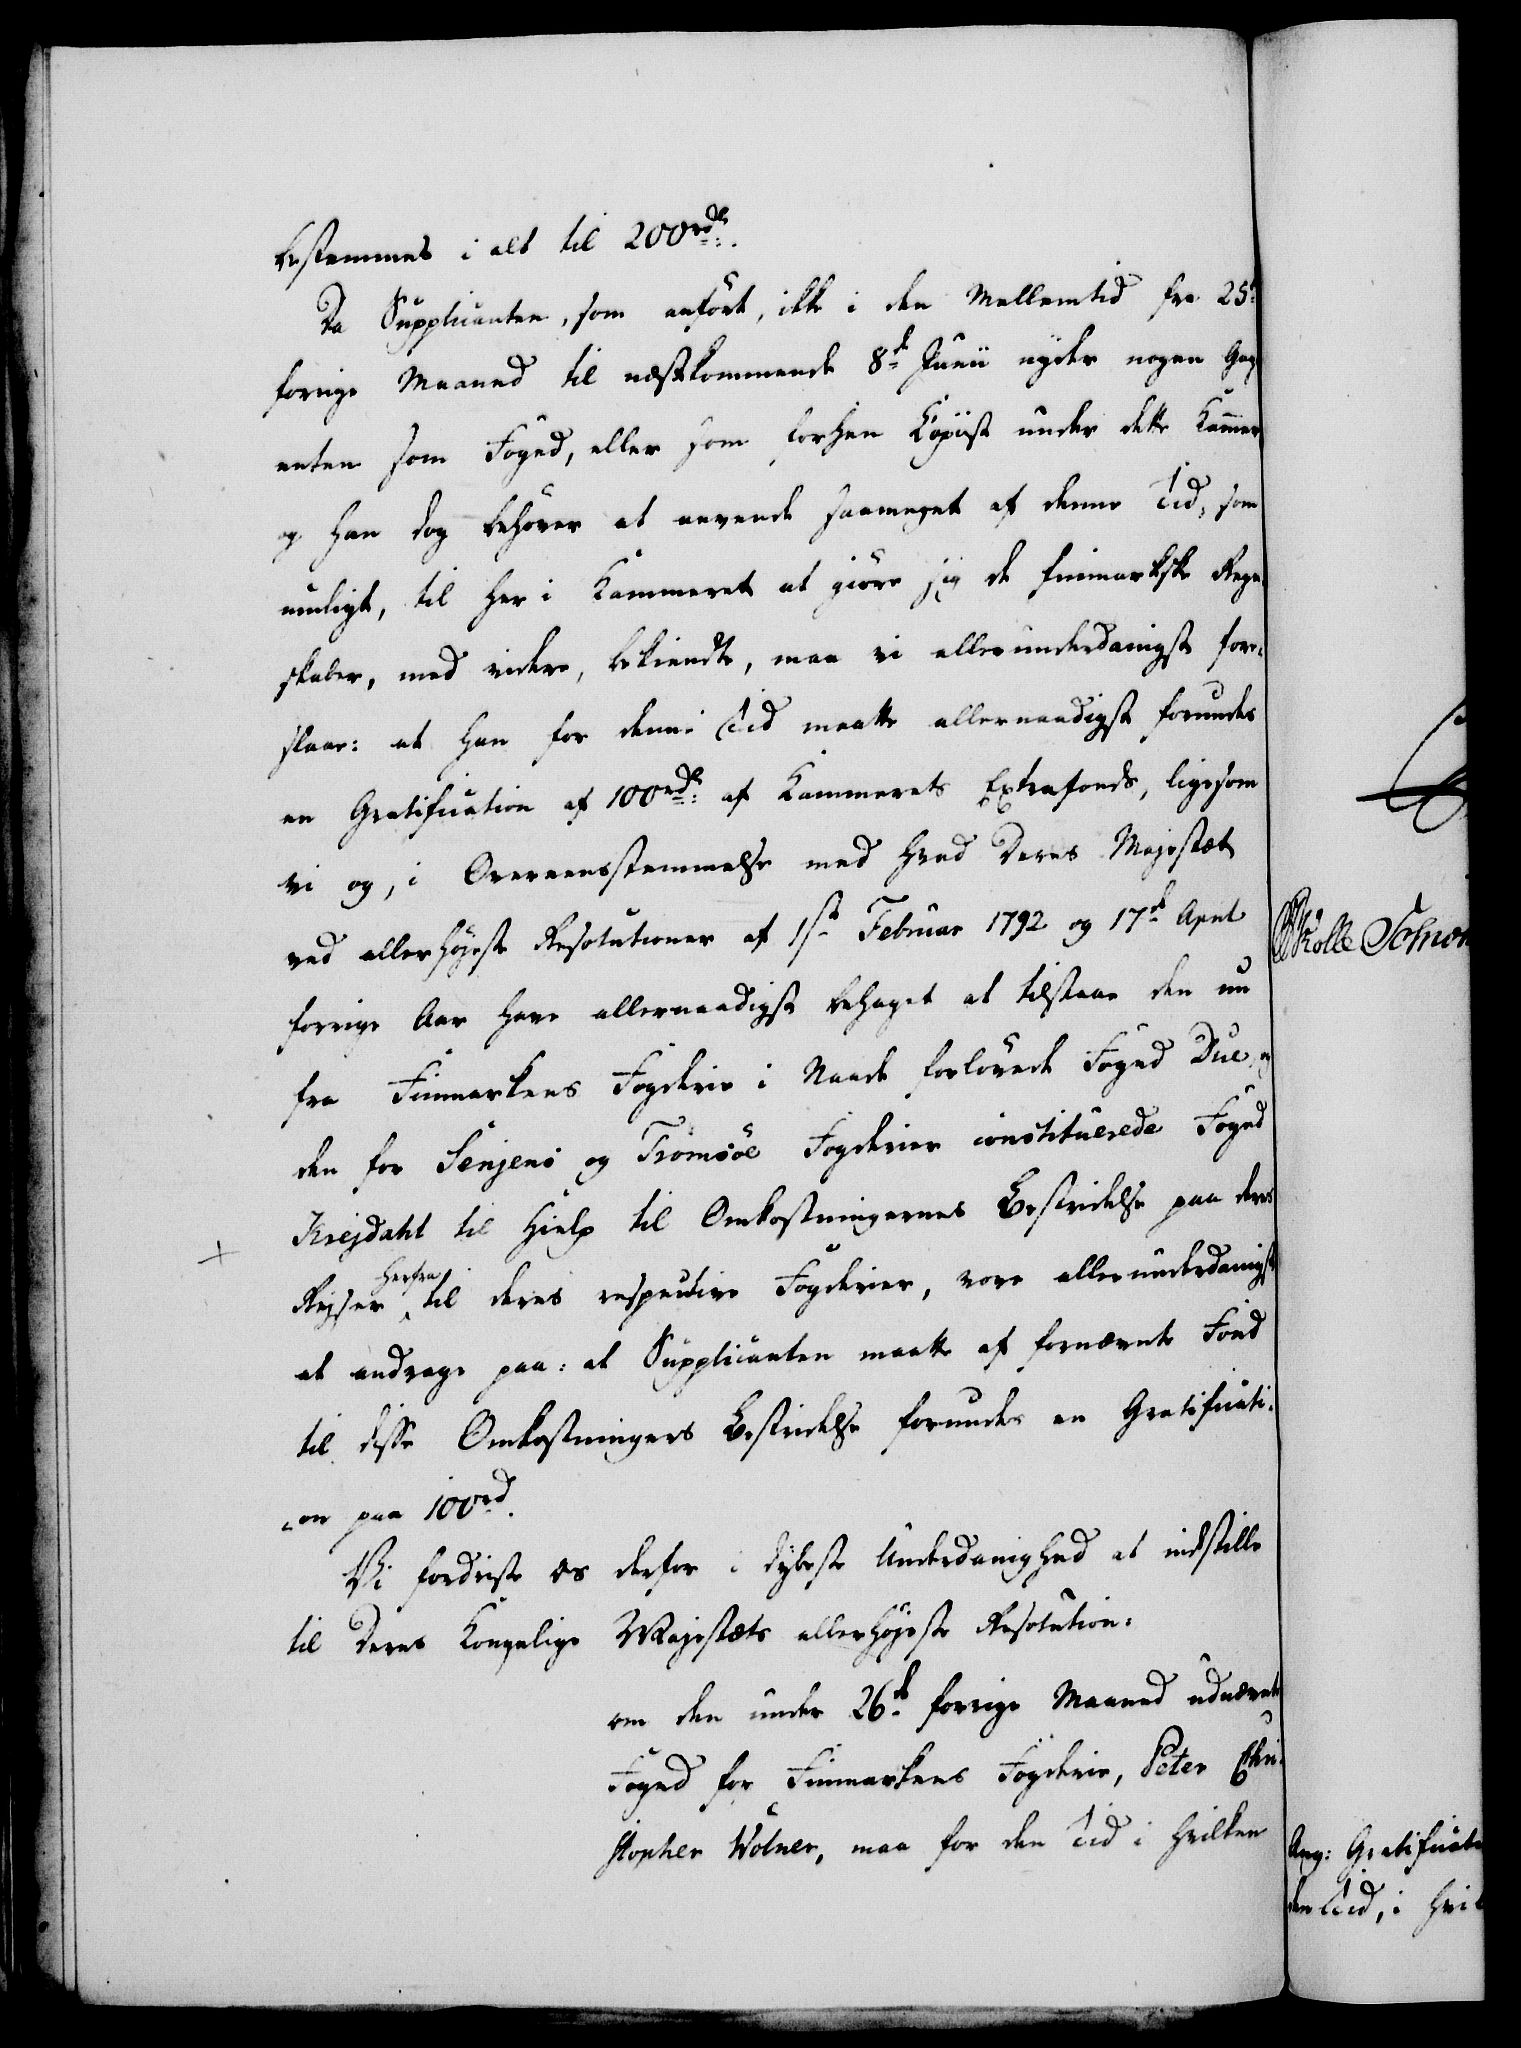 bestemmes i alt til 200rdlr.
Da Supplicanten, som anført, ikke i den Mellemtid fra 25d
forrige Maaned til næstkommende 8de Junii nyder nogen Gage
enten som Foged, eller som forhen Copiist under dette Kammer
og han dog behøver at anvende saameget af denne Tid, som
muligt, til her i Kammeret at giøre sig de finmarkske Regn-
skaber, med videre, bekiendte, maa vi allerunderdanigst fore-
slaae: at han for denne Tid maatte allernaadigst forundes
en Gratification af 100rdlr: af Kammerets Extrafonds, ligesom
vi og, i Overeensstemmelse med hvad Deres Majestæt
ved allerhøjeste Resolutioner af 1ste Februar 1792 og 17de April
forrige Aar have allernaadigst behaget at tilstaae den nu
fra Finmarkens Fogderie i Naade forlovede Foged Due, og
den for Senjens og Tromsöe Fogderier constituerede Foged
Krejdahl til Hielp til Omkostningernes Bestridelse paa deres
Rejser herfra til deres respective Fogderier, vove allerunderdanigst
at andrage paa: at Supplicanten maatte af fornævnte Fond
til disse Omkostningers Bestridelse forundes en Gratificati-
-on paa 100rd.
Vi fordriste os derfor i dybeste Underdanighed at indstille
til Deres Kongelige Majestæts allerhøjeste Resolution:
om den under 26de forrige Maaned udnævnte
Foged for Finmarkens Fögderie, Peter Chri-
stopher Wölner, maa for den Tid i hvilken
Kolle
Ang: Gratificati
den Tid, i hvil